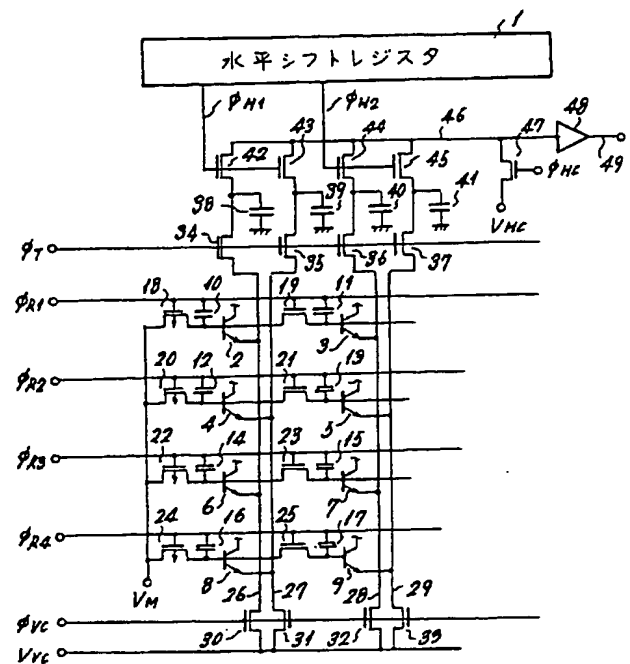 1
水平シフトレジスタ
φH1
φH2
42
43
44
45
46
47
48
49
φHC
VHC
38
39
40
41
φT
34
35
36
37
φR1
18
10
19
11
2
3
φR2
20
12
21
13
4
5
φR3
22
14
23
15
6
7
φR4
24
16
25
17
8
9
VM
26
27
28
29
φVC
30
31
32
33
VVC